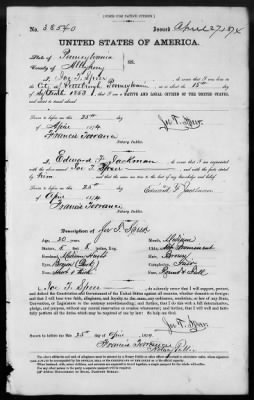 [FORM FOR NATIVE CITIZEN.]
No. 38540 Issued April 27 1874
UNITED STATES OF AMERICA.
State of Pennsylvania
County of Allegheny ss.
I, Jos. T. Speer, do swear that I was born in
City of Pittsburgh Pennsylvania on or about the 15th day
of September 1853; that I am a NATIVE AND LOYAL CITIZEN OF THE UNITED STATES,
Sworn to before me this 25th day
of April 1874 Jos. T. Speer
Francis Torrance
I, Edward F. Jackman, do swear that I am acquainted
with the above-named Jos. T. Speer and with the facts stated by
him
Sworn to before me this 25th day
of April 1874 Edward F. Jackman
Francis Torrance
Description of Jos T. Speer
Age: 20 years. Mouth: Medium
Stature: 5 feet inches, Eng. Chin: Prominent
Forehead: Medium Height Hair: Brown
Eyes: Brown (Dark) Complexion: Fair
Nose: Short & Thick Face: Round & Full
I, Jos. T. Speer, do solemnly swear that I will support, protect,
and defend the Constitution and Government of the United States against all enemies, whether domestic or foreign;
and that I will bear true faith, allegiance, and loyalty to the same, any ordinance, resolution, or law of any State,
Convention, or Legislature to the contrary notwithstanding; and further, that I do this with a full determination,
pledge, and purpose, without any mental reservation or evasion whatsoever; and further, that I will well and faithfully
perform all the duties which may be required of me by law: So help me God.
Jos. T. Speer
Sworn to before me this 25th day of April 1874
Francis Torrance
Notary Public